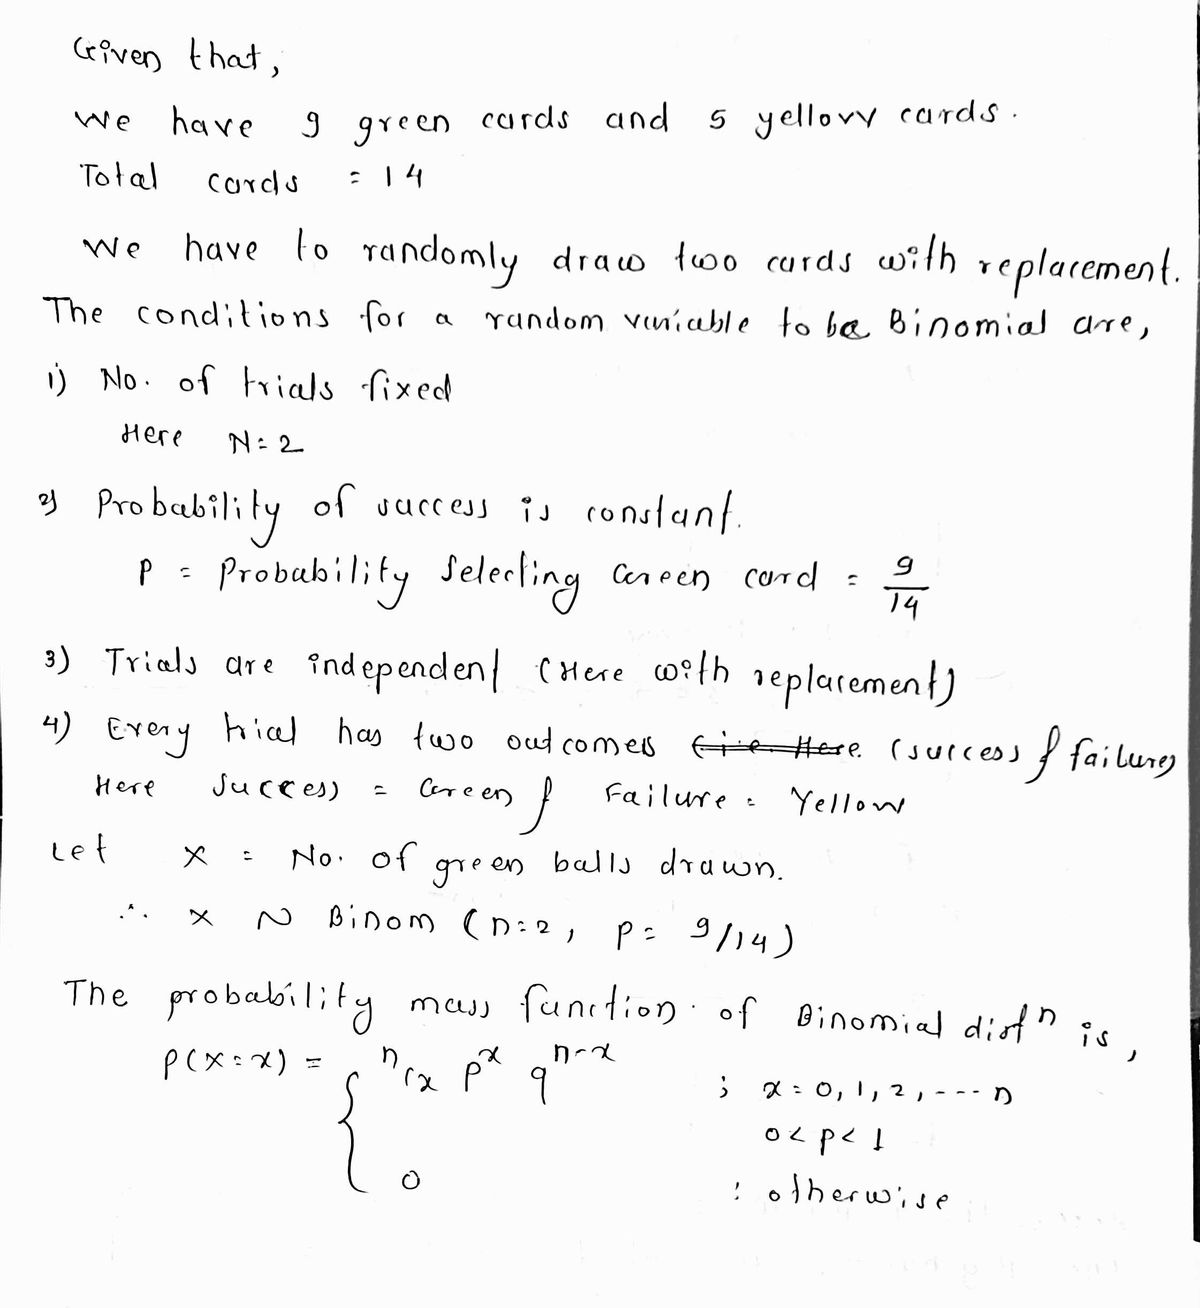 Given that,
We have 9 green cards and 5 yellow cards.
Total cards = 14
We have to randomly draw two cards with replacement.
The conditions for a random variable to be Binomial are,
1) No. of trials fixed
Here N = 2
2) Probability of success is constant.
P = Probability Selecting Green card = 9/14
3) Trials are independent (Here with replacement)
4) Every trial has two outcomes (i.e. Here. (success & failure)
Here Success = Green & Failure = Yellow
Let x = No. of green balls drawn.
∴ x ~ Binom (n=2, p= 9/14)
The probability mass function of Binomial distⁿ is,
P(X=x) = { ⁿCx pˣ qⁿ⁻ˣ ; x = 0, 1, 2, ---- n
0 < p < 1
0 ; otherwise